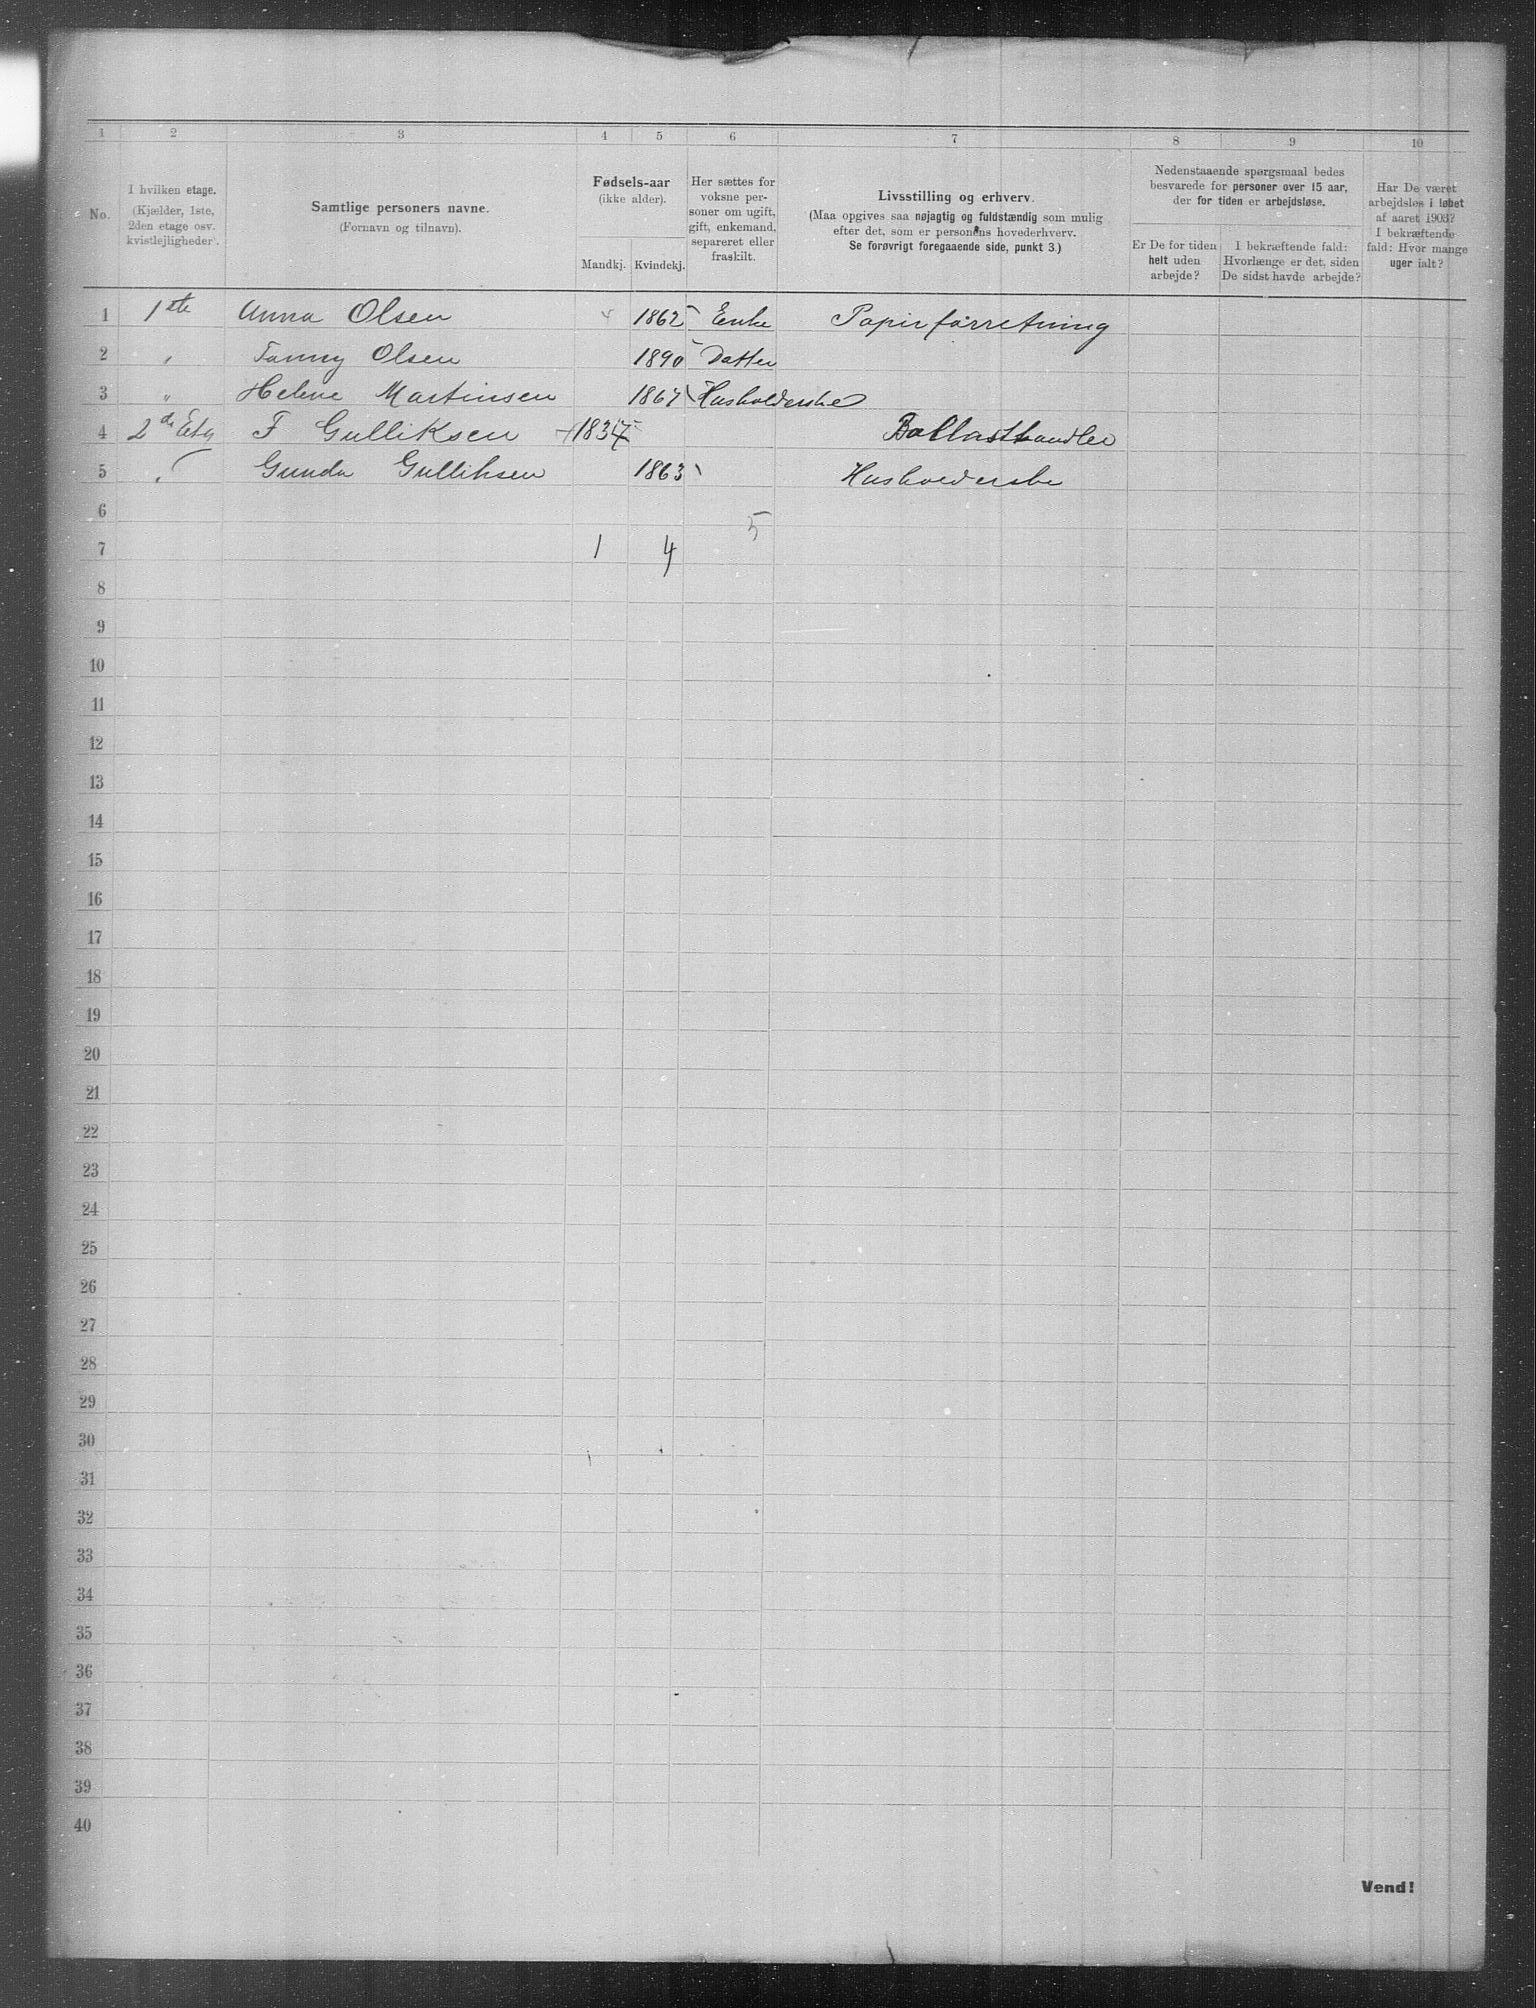 1 2 3 4 5 6 7 8 9 10
No.
I hvilken etage.
(Kjælder, 1ste,
2den etage osv.
kvistlejligheder).
Samtlige personers navne.
(Fornavn og tilnavn).
Fødsels-aar
(ikke alder).
Mandkj. Kvindekj.
Her sættes for
voksne per-
soner om ugift,
gift, enkemand,
separeret eller
fraskilt.
Livsstilling og erhverv.
(Maa opgives saa nøjagtig og fuldstændig som mulig
efter det, som er personens hovederhverv.
Se forøvrigt foregaaende side, punkt 3.)
Nedenstaaende spørgsmaal bedes
besvarede for personer over 15 aar,
der for tiden er arbejdsløse.
Er De for tiden
helt uden
arbejde?
I bekræftende fald:
Hvorlænge er det, siden
De sidst havde arbejde?
Har De været
arbejdsløs i løbet
af aaret 1903?
I bekræftende
fald: Hvor mange
uger ialt?
1 1ste Anna Olsen 1862 Enke Papirførretning
2 " Fanny Olsen 1890 Datter
3 " Helene Martinsen 1867 Husholderske
4 2de Etg F Gulliksen Ballasthandler
5 " Gunda Gulliksen 1863 Husholderske
6 5
7 1 4
8
9
10
11
12
13
14
15
16
17
18
19
20
21
22
23
24
25
26
27
28
29
30
31
32
33
34
35
36
37
38
39
40
Vend!